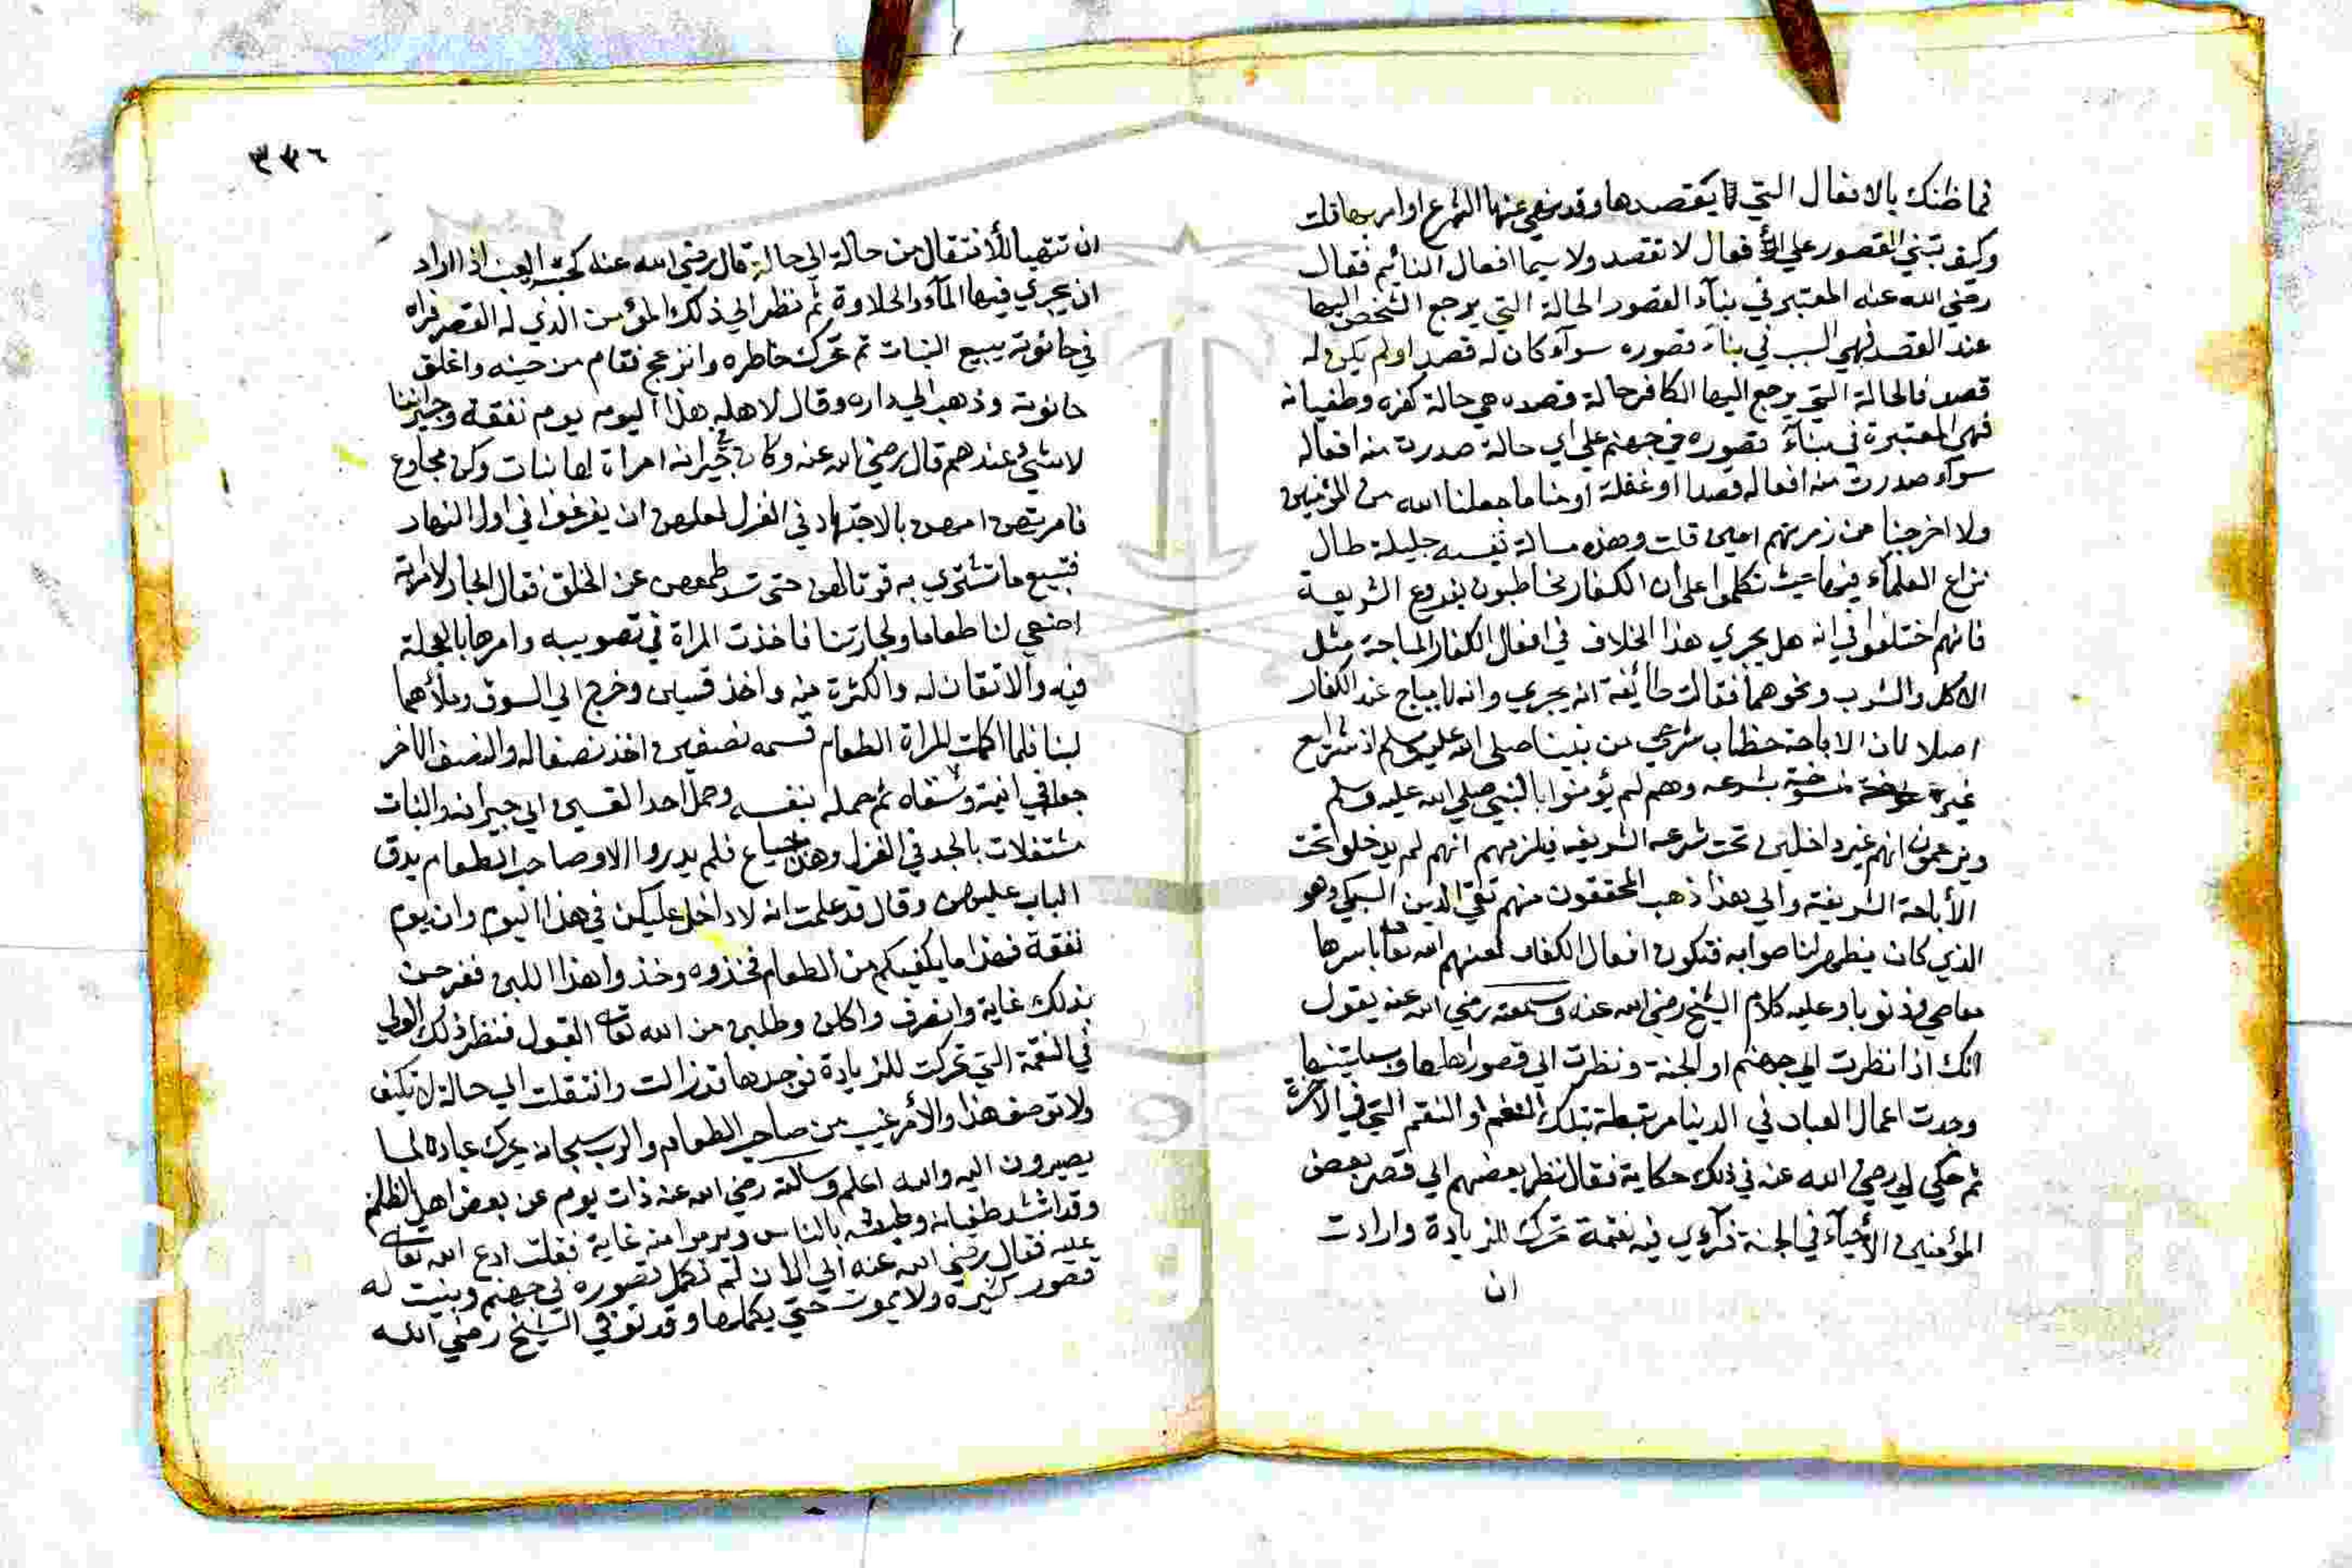 فما ظنك بالافعال التي لا يقصدها وقد نهى عنها الشرع او امر بها قلت
وكيف تبني القصور علي افعال لا تقصد ولا سيما افعال النائيم فقال
رضي الله عنه المعتبر في بنآء القصور الحالة التي يرجع الشخص اليها
عند القصد فهي السبب في بنآء قصوره سوآء كان له قصد او لم يكن له
قصد فالحالة التي يرجع اليها الكافر حالة قصده هي حالة كفره وطغيانه
فهي المعتبرة في بنآء قصوره في جهنم علي اي حالة صدرت منه افعاله
سوآء صدرت منه افعاله قصدا او غفلة او مناما جعلنا الله من المؤمنين
ولا اخرجنا من زمرتهم امين قلت وهذه مسالة نفيسه جليلة طال
نزاع العلمآء فيها حيث تكلموا على ان الكفار مخاطبون بفروع الشريعة
فانهم اختلفوا في انه هل يجري هذا الخلاف في افعال الكفار المباحة مثل
الاكل والشرب ونحوهما فقالت طائيفة انه يجري وانه لا يباح عند الكفار
اصلا لان الاباحة خطاب شرعي من نبينا صلى الله عليه وسلم اذ شرايع
غيره منسوخة بشرعه وهم لم يؤمنوا بالنبي صلي الله عليه وسلم
ويزعمون انهم غير داخلين تحت شرعه الشريفه فيلزمهم انهم لم يدخلوا تحت
الأباحة الشريفة والي هذا ذهب المحققون منهم تقي الدين السبكي وهو
الذي كان يظهر لنا صوابه فتكون افعال الكفار لعنهم الله تعا باسرها
معاصي وذنوبا وعليه كلام الشيخ رضي الله عنه وسمعته رضي الله عنه يقول
انك اذا نظرت الي جهنم او الجنة ونظرت الي قصور اهلها وبساتينها
وجدت اعمال العباد في الدنيا مرتبطة بتلك النعم او النقم التي في الآخرة
ثم حكي لي رضي الله عنه في ذلك حكاية فقال نظر بعضهم الي قصر بعض
المؤمنين الأحيآء في الجنة فرآوي فيه نعمة تحرك للزيادة وارادت
ان
٣٣٦
ان تتهيا للأنتقال من حالة الي حالة قال رضي الله عنه كحبة العنب اذا اراد
ان يجري فيها المآء والحلاوة ثم نظر الي ذلك المؤمن الذي له القصر فراه
في حانوته يبيع الثياب ثم تحرك خاطره وانزعج فقام من حينه واغلق
حانوته وذهب الي داره وقال لاهله هذا اليوم يوم نفقة وجيراننا
لا شيء عندهم قال رضي الله عنه وكان في جيرانه امراة لها بنات وكن مجاوع
فامرتهن امهن بالاجتهاد في الغزل لعلهن ان يفرغوا في اول النهار
فتبيع ما تشتري به قوتا لهن حتى تسد طمعهن عن الخلق فقال الجار لامراته
اصنعي لنا طعاما ولجارتنا فاخذت المراة في تصويبه وامرها بالعجلة
فيه والاتقان له والكثرة منه واخذ قسين وخرج الي السوق وملأهما
لبنا فلما اكملت المراة الطعام قسمه نصفين اخذ نصفا له والنصف الاخر
جعله في انية وسقاه ثم حمله بنفسه وحمل احد القسين الي جيرانه والبنات
مشتغلات بالجد في الغزل وهن جياع فلم يدروا الا وصاحب الطعام يدق
الباب عليهن وقال قد علمت انه لا داخل عليكن في هذا اليوم وانه يوم
نفقة فهذا ما يكفيكم من الطعام فخذوه وخذوا هذا اللبن ففرحن
بذلك غاية وانصرف واكلن وطلبن من الله تعا له القبول فنظر ذلك الولي
في النعمة التي تحركت للزيادة فوجدها قد زالت وانتقلت الي حالة لا تكيف
ولا توصف هذا والأمر غيب من صاحب الطعام والرب سبحانه يحرك عباده لما
يصيرون اليه والله اعلم وسالته رضي الله عنه ذات يوم عن بعض اهل الظلم
وقد اشتد طغيانه وبطشه بالناس وتبرموا منه غاية فقلت ادع الله تعا
عليه فقال رضي الله عنه الي الان لم تكمل قصوره في جهنم وبنيت له
قصور كثيره ولا يموت حتي يكملها وقد توفي الشيخ رضي الله